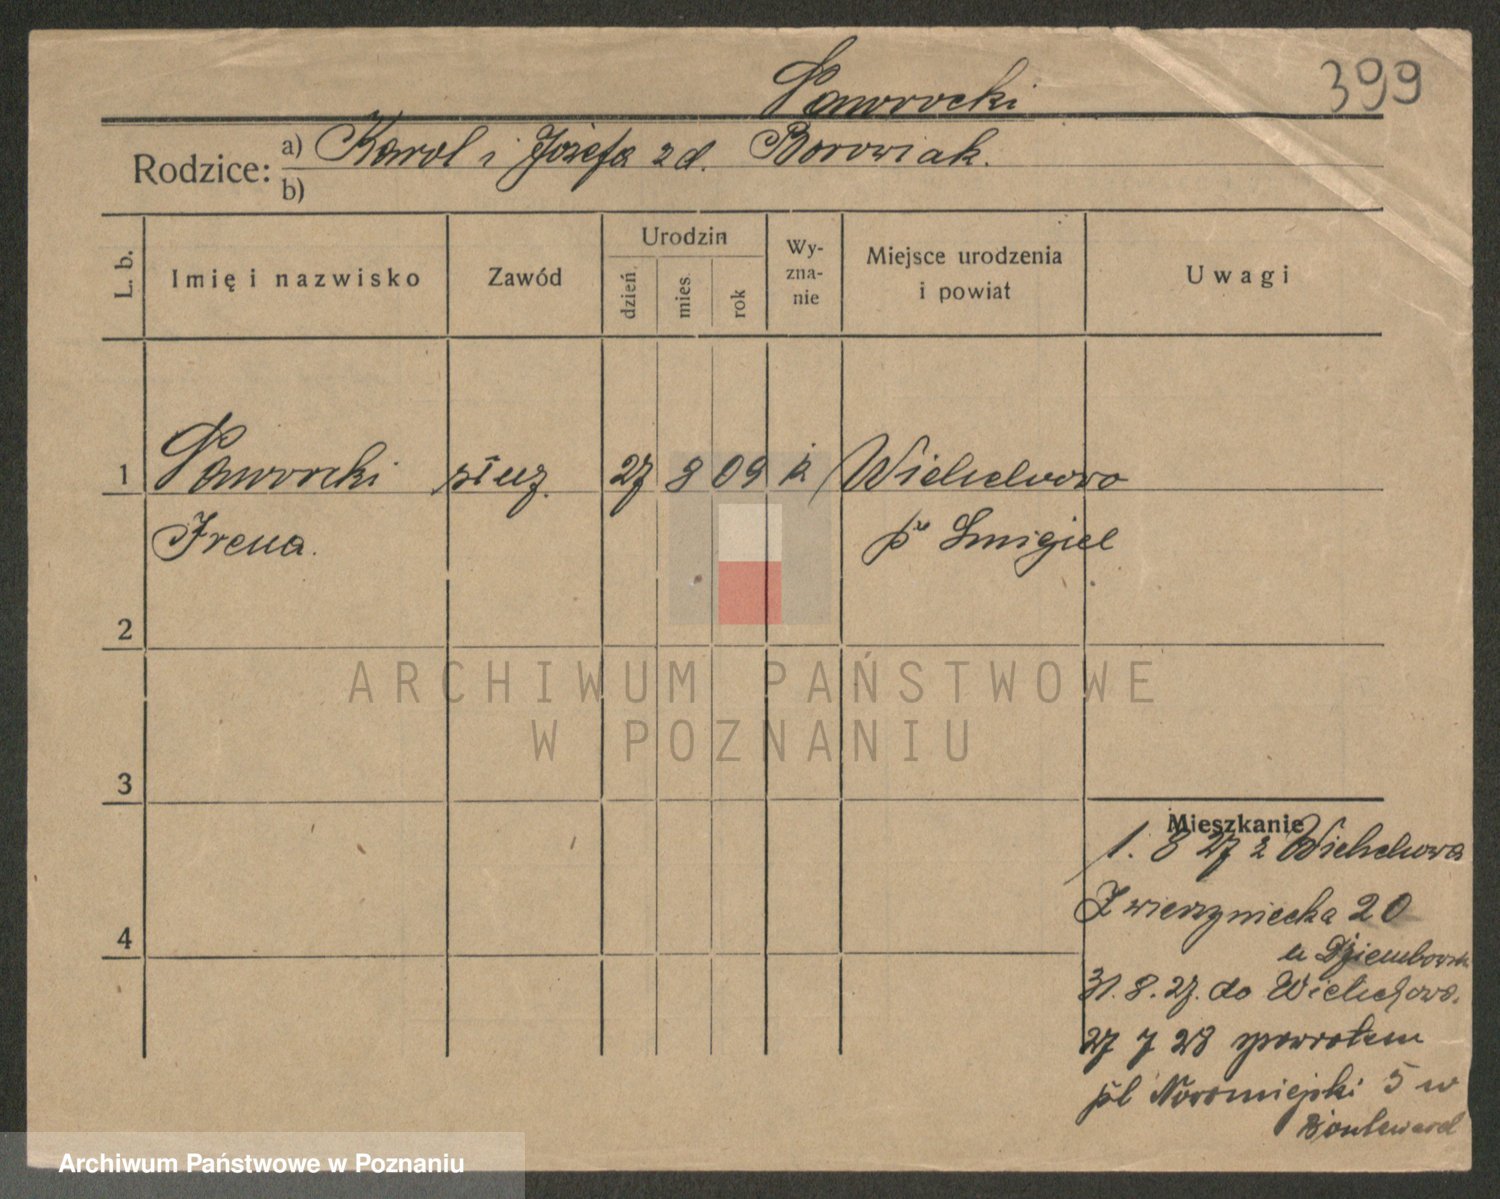 399
Pawrocki
Rodzice: a) Karol i Józefa zd. Borowiak.
b)
L. b. Imię i nazwisko Zawód Urodzin dzień mies. rok Wy-zna-nie Miejsce urodzenia i powiat Uwagi
1 Pawrocki służ. 27 8 09 k Wielichowo
Irena. p. Smigiel
2
3
Mieszkanie
1. 8 27 z Wielichowa
Zwierzyniecka 20
4
u
31. 8. 27. do Wielichowo.
27 7 28 spowrotem
pl Nowomiejski 5 w
ARCHIWUM PAŃSTWOWE
W POZNANIU
Archiwum Państwowe w Poznaniu